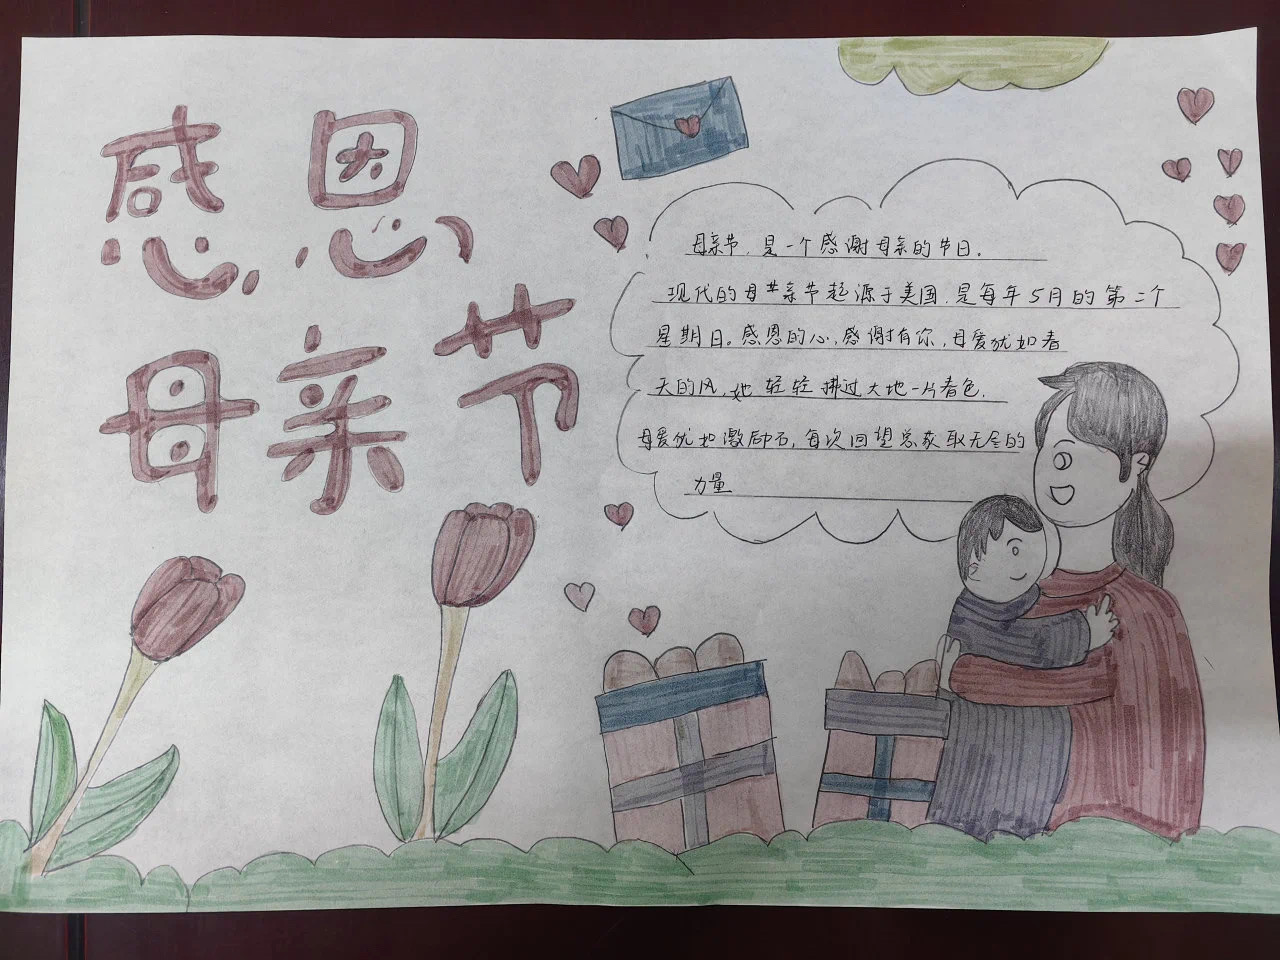 感恩
母亲节
母亲节,是一个感谢母亲的节日.
现代的母亲节起源于美国,是每年5月的第二个
星期日。感恩的心,感谢有你,母爱犹如春
天的风,她轻轻拂过大地一片春色.
母爱犹如激励石,每次回望总获取无尽的
力量